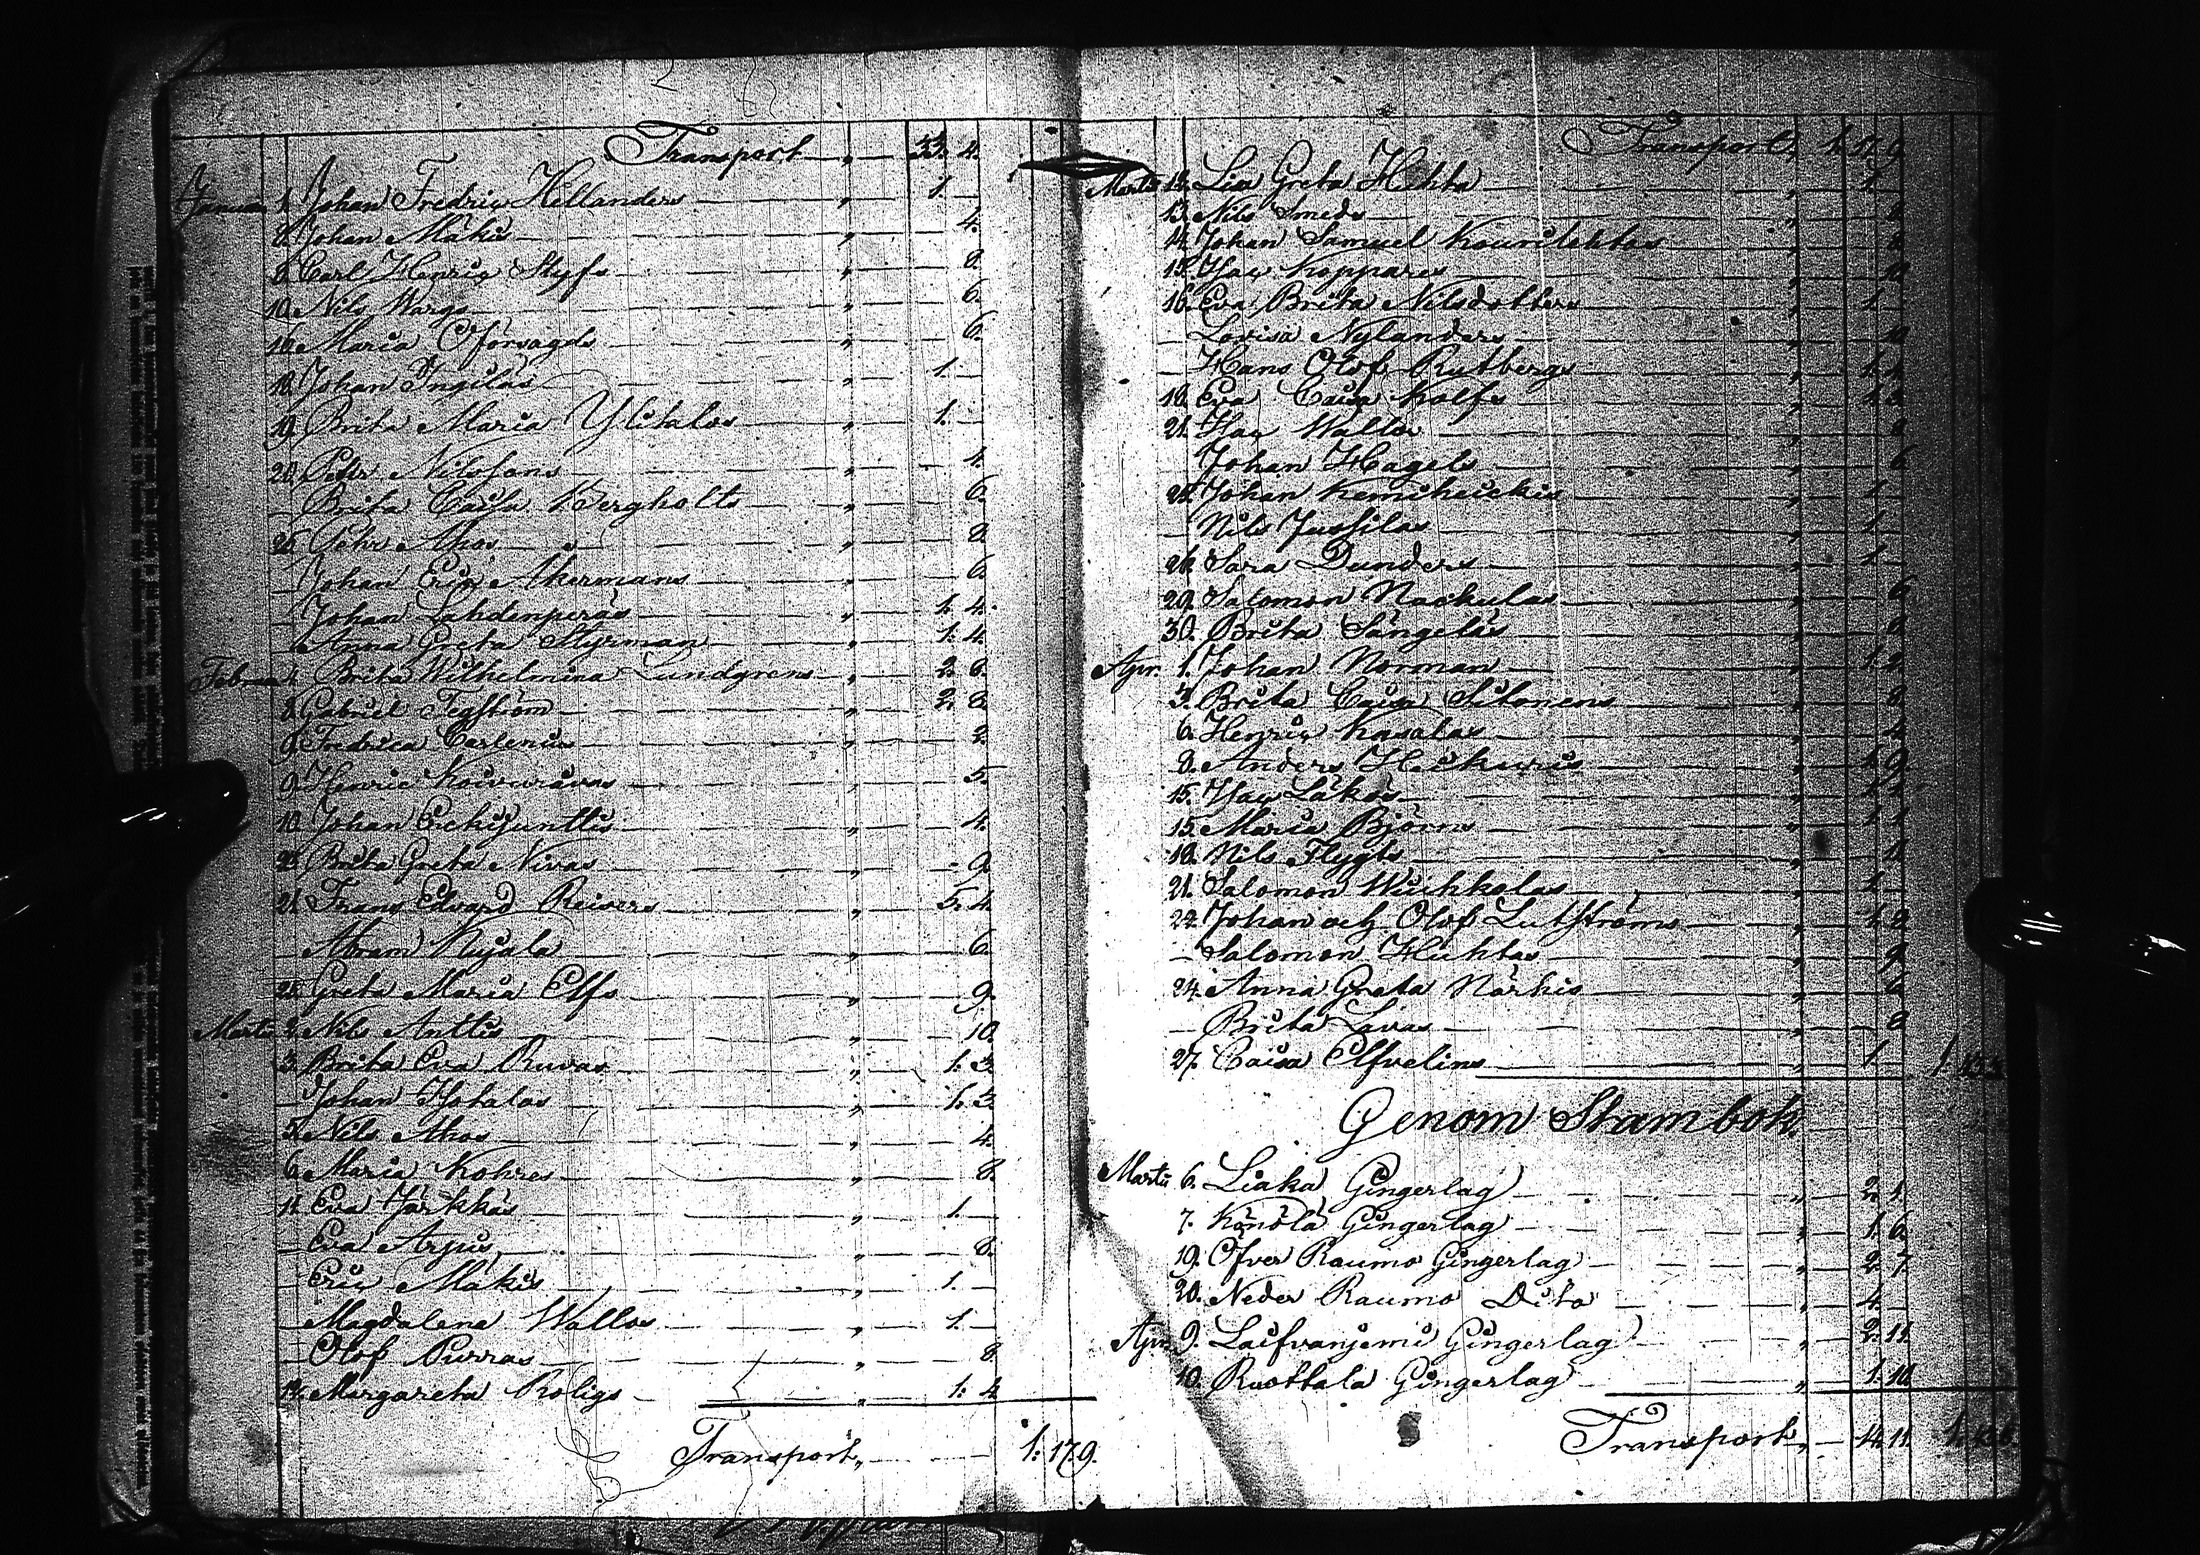 Transport „ — 33. 4.
1. Johan Fredric Hellanders „ 1. —
8. Johan Mäkis „ — 4.
8. Carl Henric Styfs „ — 8.
10. Nils Wargs „ — 6.
16. Maria Oförsagds „ — 6.
18. Johan Ingilas „ 1. —
19. Brita Maria Ylitalos „ 1. —
20. Petter Nilssons „ — 4.
— Brita Caisa Bergholts „ — 6.
25. Göhr Ahos „ — 8.
— Johan Eric Akermans „ — 6.
— Johan Lahdenperäs „ 1. 4.
— Anna Greta Styrman „ 1. 4.
Febru Brita Wilhelmina Lundgrens „ 2. 8.
8. Gabriel Tegström „ 2. 8.
9. Fredrica Carlenius „ — 2.
9. Henric Koivuvaras „ — 5.
10. Johan Erkijunttis „ — 4.
Brita Greta Nivas „ — 9.
21. Frans Edvard Reivers „ 5. 4.
— Abram Kujala „ — 6.
Greta Maria Elfs „ — 9.
Martii 2. Nils Anttis „ — 10.
3. Brita Eva Ruvas „ 1. 3.
— Johan Isotalos „ 1. 3.
5. Nils Ahos „ — 4.
6. Maria Kohres „ — 8.
11. Eva Järkkäs „ 1. —
— Eva Arpus „ — 8.
— Eric Mäkis „ 1. —
— Magdalena Wallos „ 1. —
— Olof Purras „ — 8.
12. Margareta Roligs „ 1: 4.
Transport „ 1: 17. 9.
Transport „ 1. 17. 9.
Martii 12. Lisa Greta Hehta „ 1. —
13. Nils Smeds „ — 8
14. Johan Samuel Kourilehtos „ — 8
15. Isac Koppares „ — 8
16. Eva Brita Nilsdotters „ 1. —
— Lovisa Nylanders „
— Hans Olof Rutbergs „ 1. 4
18. Eva Caisa Kolfs „ 1. 3
21. Isac Wallos „ — 8
— Johan Hagels „ — 6
22. Johan Kemiheickis „ 1. —
— Nils Jussilas „ 1. —
26. Sara Dunders „ 1. —
29. Salomon Nackulas „ — 6
30. Brita Sängeläs „ — 8
Apr. 1. Johan Norman „ 1. 2
3. Brita Caisa Sitonens „ — 8
6. Henric Kasalas „ — 4
8. Anders Heickuris „ 1. 9.
15. Isac Läkös „
15. Maria Björns „
18. Nils Flygts „
21. Salomon Wuihkolas „ 1. —
22. Johan och Olof Lutströms „ 1. 2
— Salomon Huhtas „ — 9
24. Anna Greta Närkis „ — 6
— Brita Lavas „ — 8
27. Caisa Elfvelins „ 1. —
Genom Stambok.
Martii 6. Liaka Gingerlag „ 2. 1.
7. Könölä Gingerlag „ 1. 6.
19. Öfver Raumo Gingerlag „ 2. 7.
20. Neder Raumo Dito „ 4. —
Apr. 9. Laifvanjemi Gingerlag „ 2. 11.
10. Ruottala Gingerlag „ 1. 10.
Transport „ 14. 11.